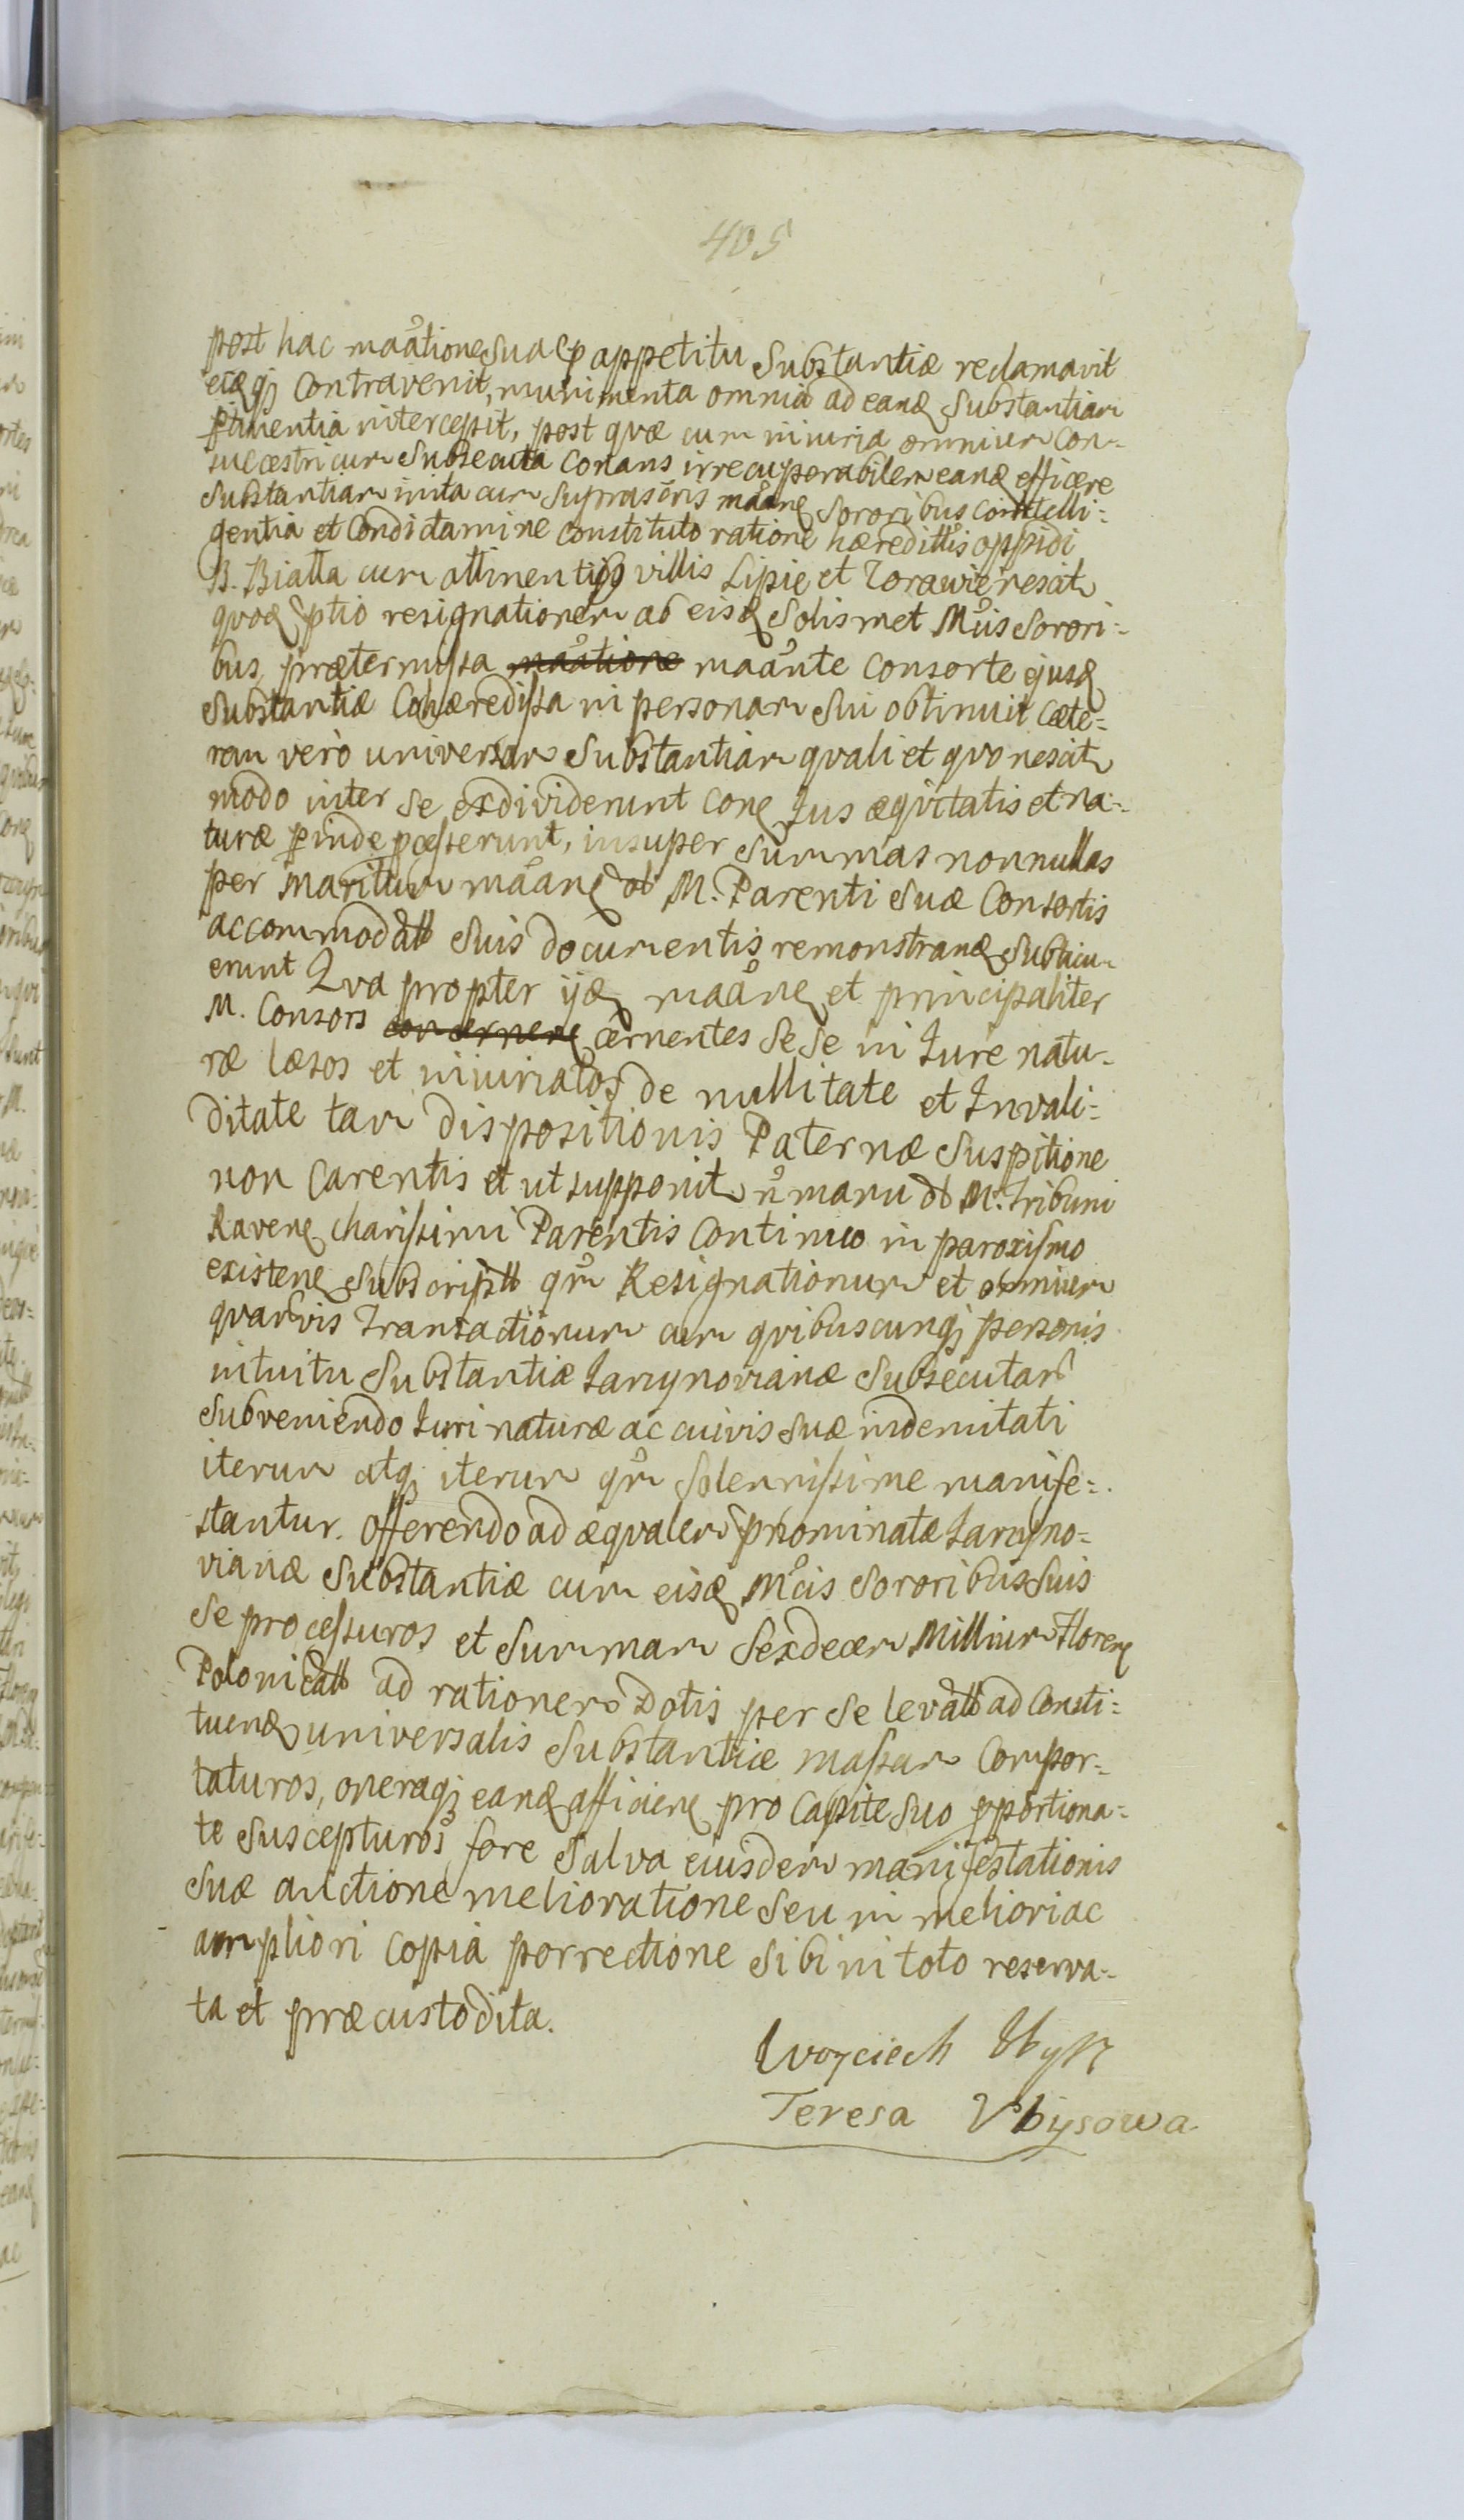 405
post hac maãtione sua et appetitu Substantiæ reclamavit
eiq̃ qꝫ contravenit, munimenta omnia ad eanđ Substantiam
ꝑtinentia intercepit, post quæ cum iniuria omnium con-
sucæstricum Subsecuta conans irrecuperabilem eanđ efficere
Substantiam inita cum Suprascris maãnđ Sororibus Cointelli-
gentia et Condictamine constituto ratione hæredittis oppidi
B. Biatta cum attinentibꝫ villis Lipie et Zorawie nescit
quođ ptio resignationem ab eisđ Solismet Mcis Sorori-
bus, prætermissa maãtione maãnte consorte ejusđ
Substantiæ Cohæredissa in personam Sui obtinuit Cæte-
ram vero universam Substantiam quali et quo nescit
modo inter se exdividerunt conđ Jus æquitatis et na-
turæ ꝑinde pcesserunt, insuper Summas nonnullas
per Maritum maãnđ M. Parenti Suæ Consortis
accommodatt Suis documentis remonstranđ Subticu-
erunt Qva propter ijđ maãnđ et principaliter
M. Consors concernenđ cernentes Sese in Jure natu-
ræ læsos et iniuriatos de nullitate et Invali-
ditate tam dispositionis Paternæ Suspitione
non Carentis et ut supponit n manu M. Tribuni
Ravenđ charissimi Parentis Continuo in paroxismo
existenđ Subscriptt qm Resignationum et omnium
quarvis Transactionum cum quibuscunqꝫ personis
intuitu Substantiæ Jarcynovianæ Subsecutar
Subveniendo Juri naturæ ac cuivis Suæ indemnitati
iterum atqꝫ iterum qm Solennissime manife-
stantur. Offerendo ad æqualem pnominatæ Jarcyno-
vianæ Substantiæ cum eisđ Mcis Sororibus Suis
Se processuros et Summam Sexdecem Millium Florenđ
Polonicatt ad rationem Dotis per Se levatt ad Consti-
tuenđ universalis Substantiæ massam Compor-
taturos, oneraqꝫ eanđ afficienđ pro Capite Suo ꝓportiona-
te Suscepturos fore Salva eiusdem manifestationis
Suæ auctione melioratione Seu in meliori ac
ampliori Copia porrectione Sibi in toto reserva-
ta et præcustodita.
Woyciech Ubysz
Teresa Vbysowa